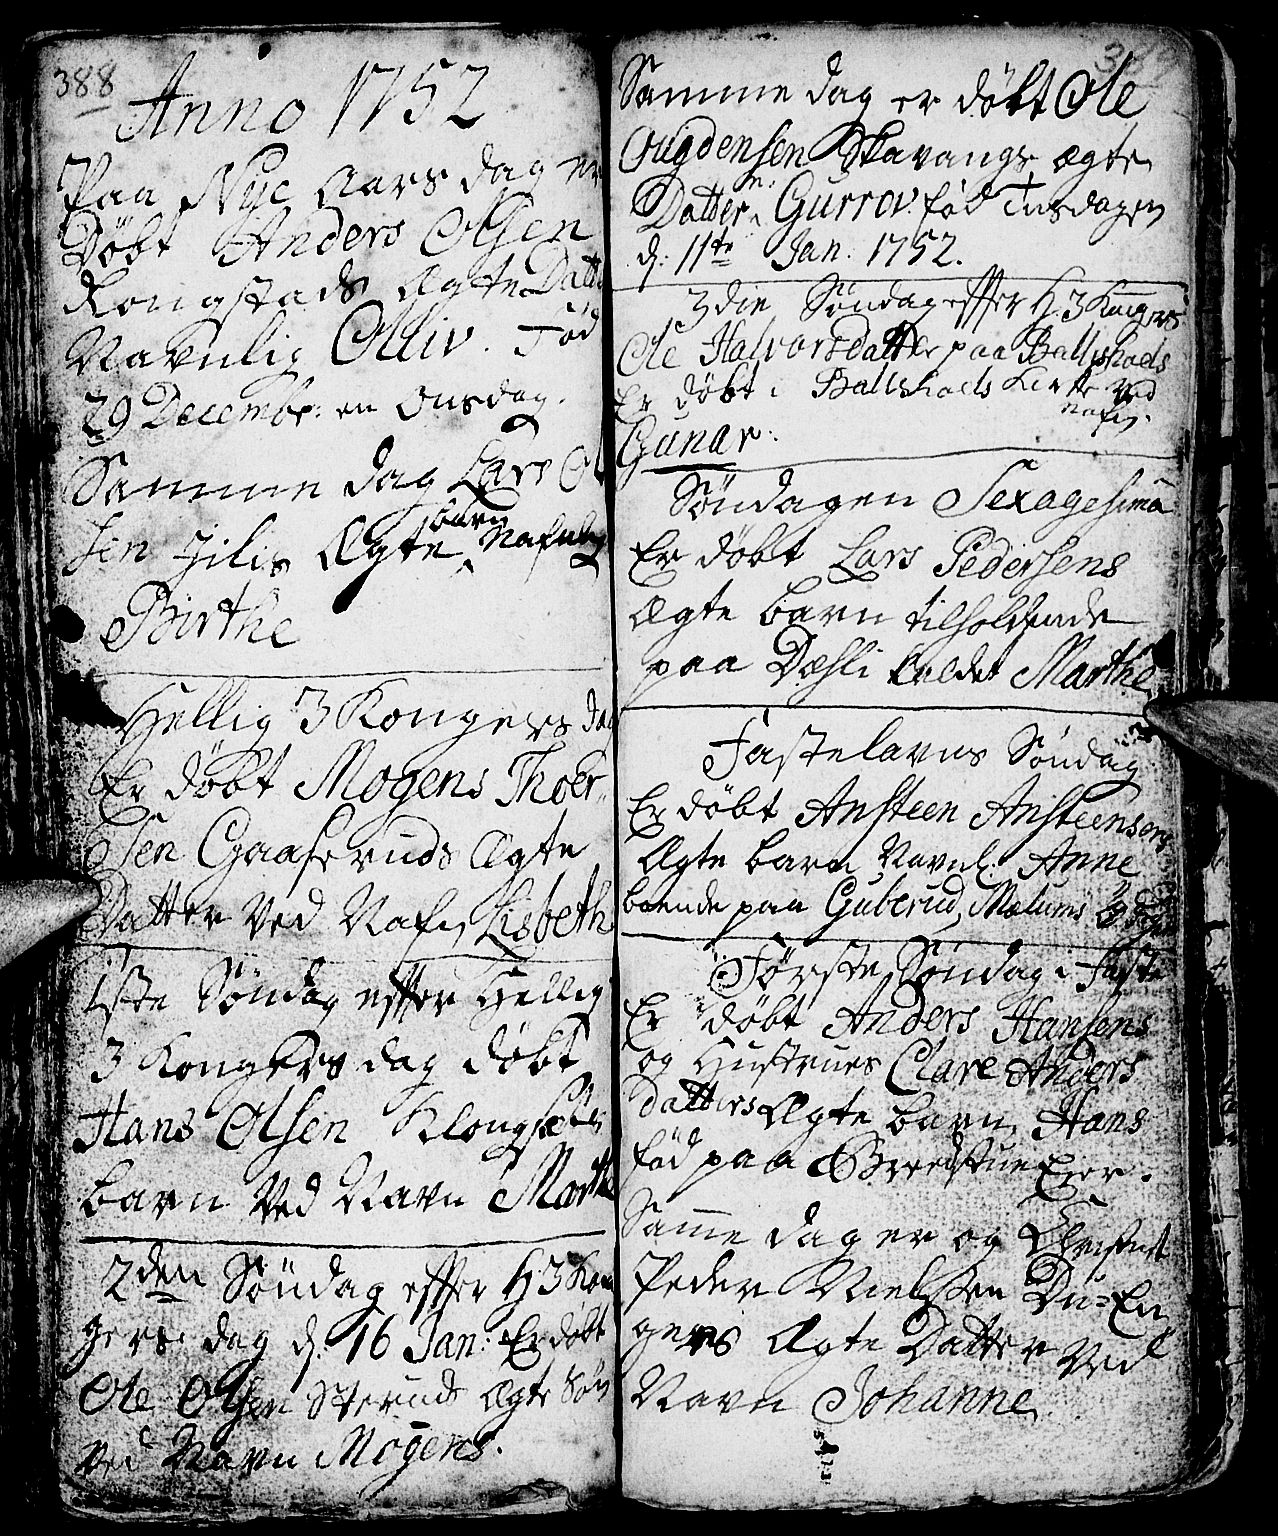 388
Anno 1752
Paa Nye Aars dag er
Døbt Anders Olsen
Kongstads Ægte Datter
Navnlig Olliv. Fød
29 Decembr: en Onsdag.
Samme dag Lars Ol
sen Hilis Ægte barn Nafnlig
Birthe
Hellig 3 Kongers dag
Er døbt Mogens Thoer-
sen Gaaseruds Ægte
Datter ved Nafn Lisbeth
1ste Søndag effter Hellig
3 Kongers dag døbt
Hans Olsen
barn Ved Navn Marthe
2den Søndag effter H 3 Kon
gers dag d. 16 Jan: Er døbt
Ole Olsen Ægte Søn
ved Navn Mogens.
Samme dag er døbt Ole
Gugdensen Skavangs ægte
Datter n. Gurrov. fød Tirsdagen
d: 11te Jan. 1752.
3die Søndag effter H 3 Kongers
Ole Halvorsdatter paa Ballishoels
Er døbt i Ballshoels Kirke ved
Nafn.
Gunar.
Søndagen Sexagesima
Er døbt Lars Pedersens
Ægte barn tilholdende
paa Dæhli kaldet Marthe
Fastelavns Søndag
Er døbt Ansteen Ansteensens
Ægte barn Navnl. Anne
boende paa Guberud, Mælums
Første Søndag i Faste
Er døbt Anders Hansens
og Hustrues Clare Anders
datters Ægte barn Hans
fød paa Breedstue Eier.
Samme dag er og Christnet
Peder Nielssen Du=En
gers Ægte Datter Ved
Navn Johanne